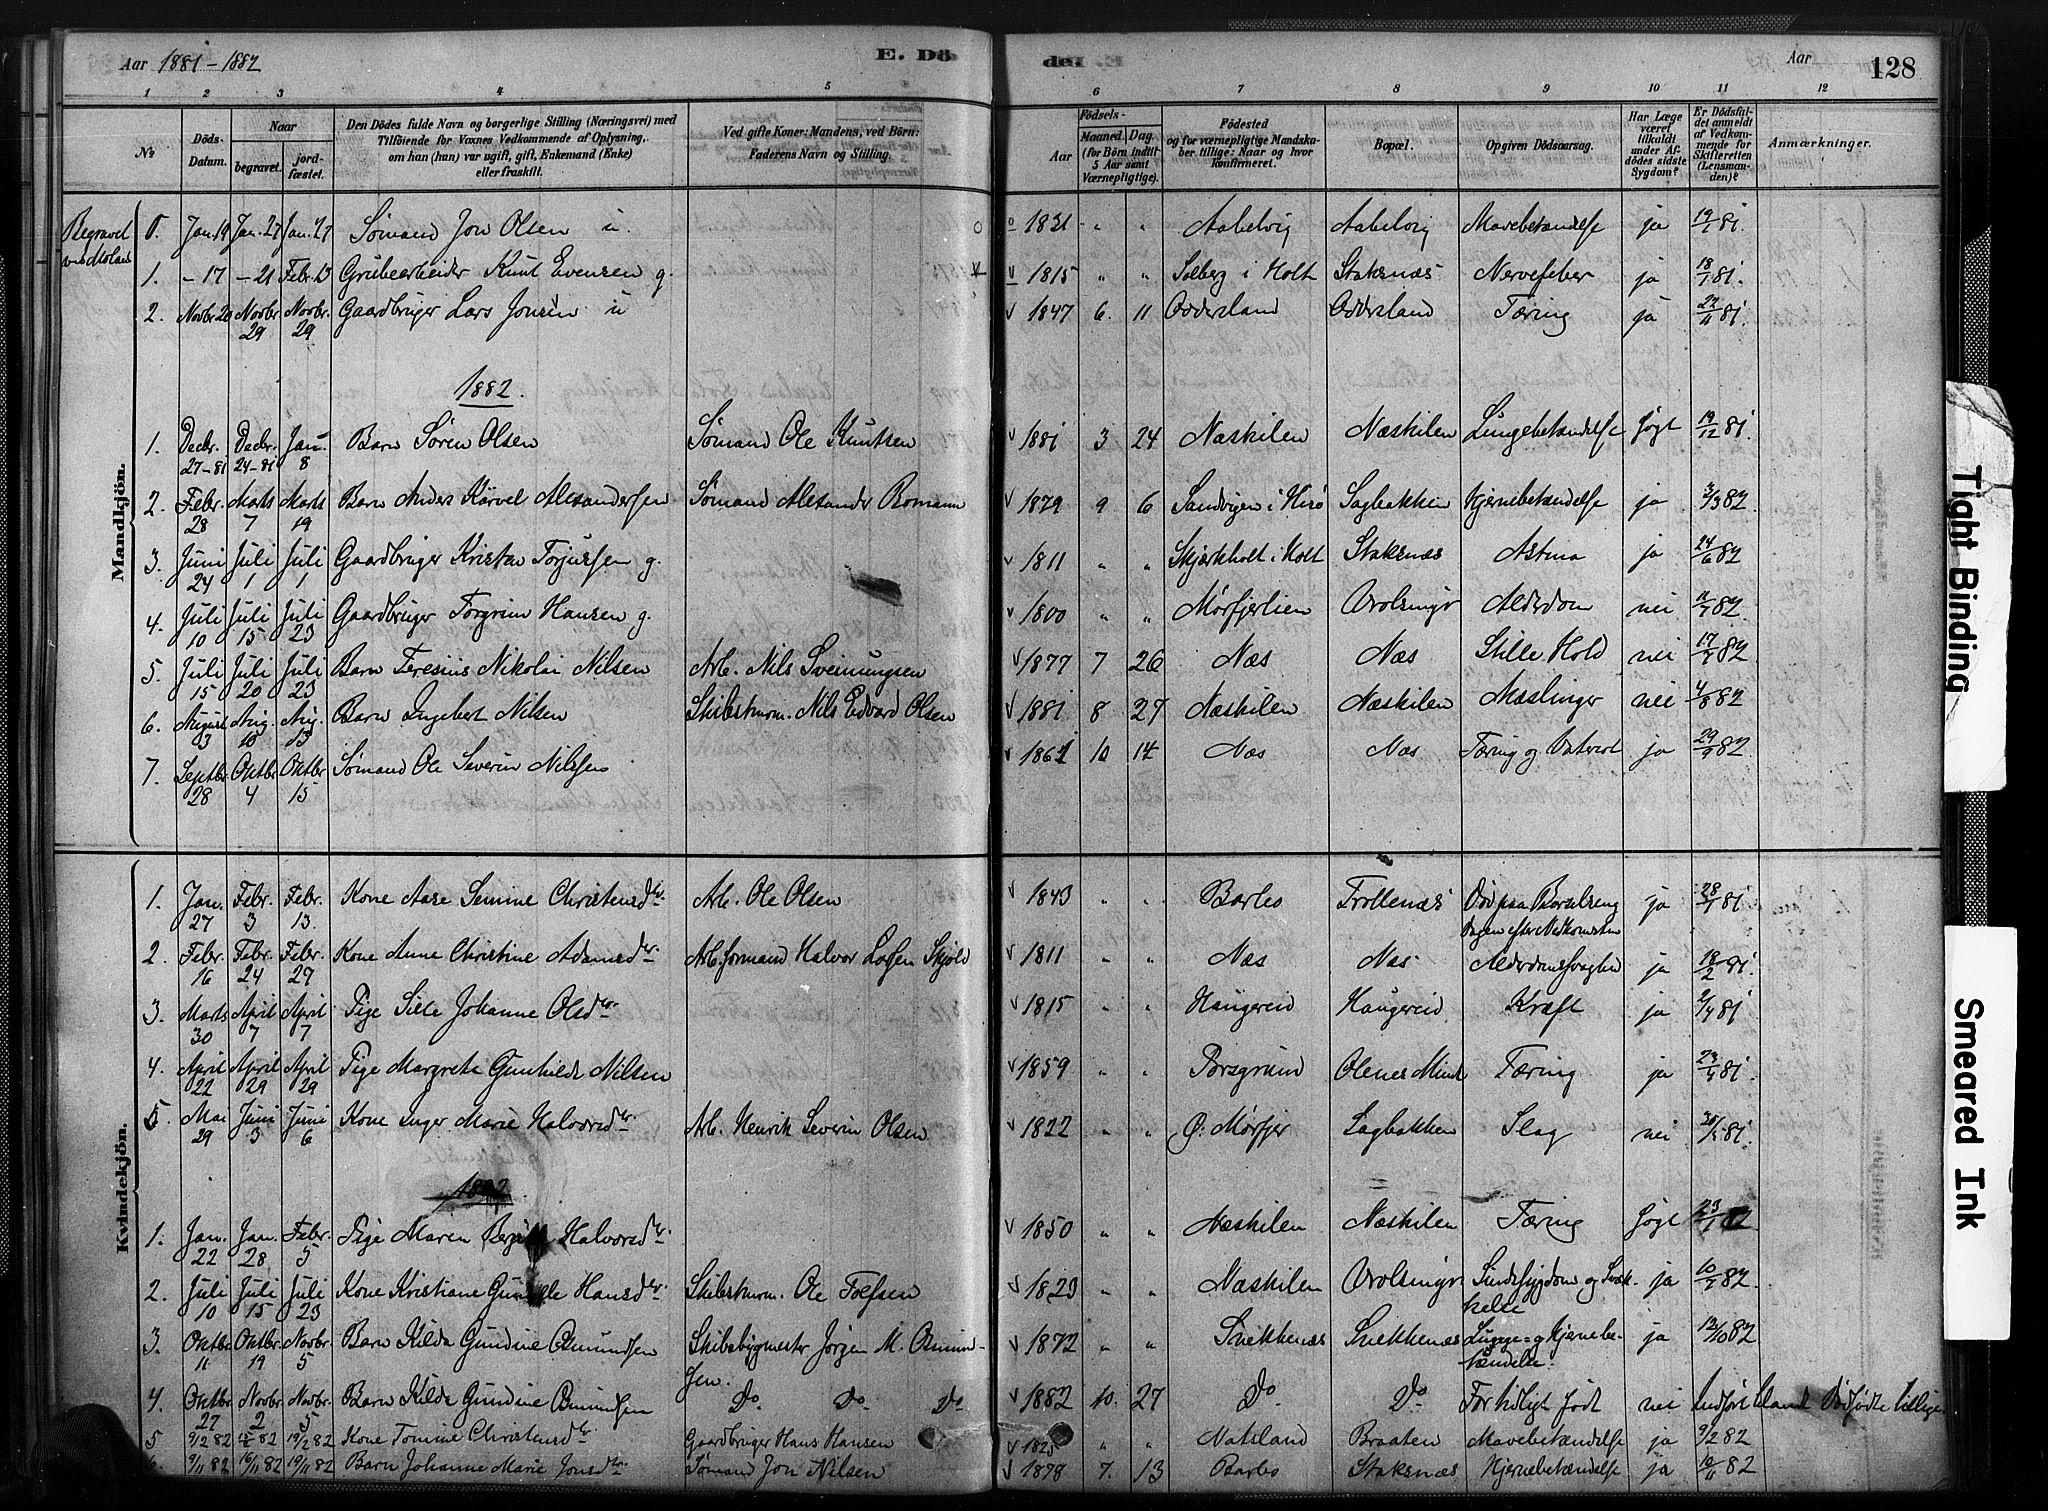 Aar 1881-1882
E. Dö
de. E.
Aar
128
1 2 3 4 5 6 7 8 9 10 11 12
No.
Döds-Datum.
Naar begravet. jordfæstet.
Den Dödes fulde Navn og borgerlige Stilling (Næringsvei) med Tilföiende for Voxnes Vedkommende af Oplysning, om han (hun) var ugift, gift, Enkemand (Enke) eller fraskilt.
Ved gifte Koner: Mandens, ved Börn: Faderens Navn og Stilling.
Födsels- Aar Maaned. Dag. (for Börn indtil 5 Aar samt Værnepligtige).
Födested og for værnepligtige Mandskaber tillige: Naar og hvor Konfirmeret.
Bopæl.
Opgiven Dödsaarsag.
Har Læge været tilkaldt under Afdödes sidste Sygdom?
Er Dödsfaldet anmeldt af Vedkommende for Skifteretten (Lensmanden)?
Anmærkninger.
Mandkjön.
Begravet
0. Jan. 19 Jan. 27 Jan. 27 Sømand Jon Olsen u. 1831 " " Aabelvig Aabelvig Mavebetændelse ja 19/1 81.
1. - 17 - 21 Febr. 13 Grubearbeider Knut Evensen g. 1815 " " Solberg i Holt Staksnæs Nervefeber ja 18/1 81.
2. Novbr. 20 Novbr. 29 Novbr. 29 Gaardbruger Lars Jensen u 1847 6. 11 Oddersland Oddersland Tæring ja 22/11 81.
1882.
1. Decbr. 27-81 Decbr. 24-81 Jan. 8 Barn Søren Olsen Sømand Ole Knutsen 1881 3 24 Næskilen Næskilen Lungebetændelse søgt 19/12 81.
2. Febr. 28 Marts 7 Marts 19 Barn Anders Kørvel Alexandersen Sømand Alexander Bomann 1879 9 6 Sandvigen i Hisø Sagbakken Hjernebetændelse ja 3/3 82
3. Juni 24 Juli 1 Juli 1 Gaardbruger Kristen Torjussen g. 1811 " " Skjærkholt i Holt Staksnæs Astma ja 24/6 82
4. Juli 10 Juli 15 Juli 23 Gaardbruger Torgrim Hansen g. 1800 " " Mørfjerlien Alderdom nei 11/7 82
5. Juli 15 Juli 20 Juli 23 Barn Teresius Nikolai Nilsen Arb. Nils Sveinungsen 1877 7 26 Næs Næs Stille Hold nei 17/7 82
6. August 3 Aug. 10 Aug. 13 Barn Ingebert Nilsen Skibstmrm. Nils Edvard Olsen 1881 8 27 Næskilen Næskilen Mæslinger nei 4/8 82
7. Septbr. 28 Oktbr. 4 Oktbr. 15 Sømand Ole Severin Nilsen 1861 10 14 Næs Næs Tæring og ja 29/9 82
Kvindekjön.
1. Jan. 27 Febr. 3 Febr. 13. Kone Aase Semine Christensdtr. Arb. Ole Olsen 1843 " " Barbo Trollenæs Død paa Barselseng Dagen efter Nedkomsten ja 28/1 81
2. Febr. 16 Febr. 24 Febr. 27 Kone Anne Christine Adamsdtr. Arb.formand Halvor Skjold 1811 " " Næs Næs Alderdomssvaghed ja 18/2 81.
3. Marts 30 April 7 April 7 Pige Sille Johanne Olsdtr. 1815 " " Haugereid Haugereid Kræft ja 2/4 81
4. April 22 April 29 April 29 Pige Margrete Gunhilde Nilsen 1859 " " Porsgrund Olenes Minde Tæring ja 23/4 81
5. Mai 29 Juni 3 Juni 6 Kone Inger Marie Halvorsdtr. Arb. Henrik Severin Olsen 1822 " " Ø. Mørfjer Sagbakken Slag nei 30/5 81.
1882.
1. Jan. 22 Jan. 28 Febr. 5 Pige Maren Halvorsdtr. 1850 " " Næskilen Næskilen Tæring søgt 23/1 82
2. Juli 10 Juli 15 Juli 23 Kone Kristiane Hansdtr. Skibstmrm. Ole Tolfsen 1829 " " Næskilen Sindssygdom og Svækkelse ja 10/7 82
3. Oktbr. 11 Oktbr. 19 Novbr. 5 Barn Hilda Gundine Osmundsen Skibsbygmester Jørgen M. Osmundsen. 1872 " " Snekkenæs Snekkenæs Lunge- og Hjernebetændelse. ja 12/10 82
4 Oktbr. 27 Novbr. 2 Novbr. 5 Barn Hilda Gundine Osmundsen Do Do Do 1882 10. 27 Do Do For tidligt født nei Indført blandt Dødfødte tillige
5 9/2 82 15/2 82 19/2 82 Kone Tomine Christensdtr. Gaardbruger Hans Hansen 1825 " " Natsland Braaten Mavebetændelse ja 9/2 82
6 9/11 82 16/11 82 19/11 82 Barn Johanne Marie Jonsdtr. Sømand Jon Nilsen 1878 7. 13 Barbo Staksnæs Hjernebetændelse ja 10/11 82
Tight Binding
Smeared Ink